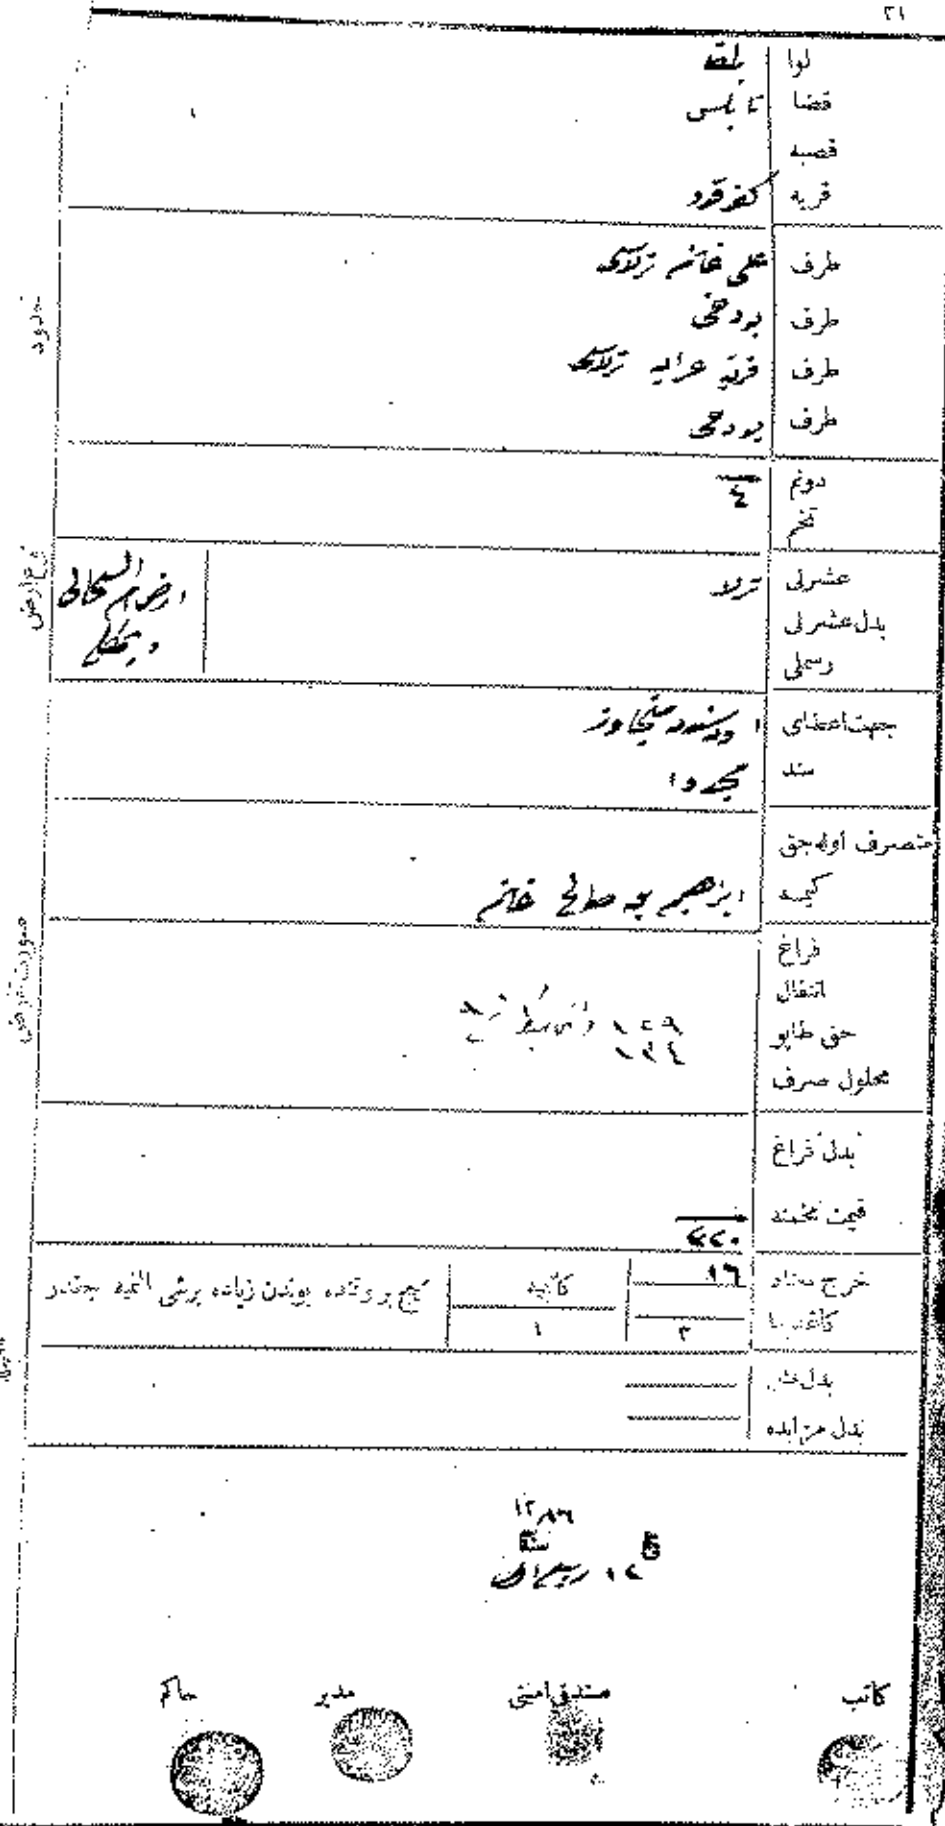 ٢١
لوا بلقا
قضا نابلس
قصبه
قريه كفر قود
حدود
طرف على غانم ترلاسى
طرف بو دخى
طرف قريه عرابه ترلاسى
طرف بو دخى
دونم ٤
تخم
نوع ارض
عشرلى ترلا
بدل عشرلى
رسملى
جهت اعطاى
سند مجددا
متصرف اوله جق
كيمسه ابراهيم بن صالح غانم
صورت تفويض
فراغ
انتقال
حق طاپو
محلول صرف
بدل فراغ
قيمت مخمنه ٤٢٠
خرج معتاد ١٦ كاتبيه هيچ بر وقتده بوندن زياده برشى النميه جقدر
كاغد بها ٣ ١
بدل مزايده
١٢٨٦
سنة
كاتب صندق امينى مدير حاكم